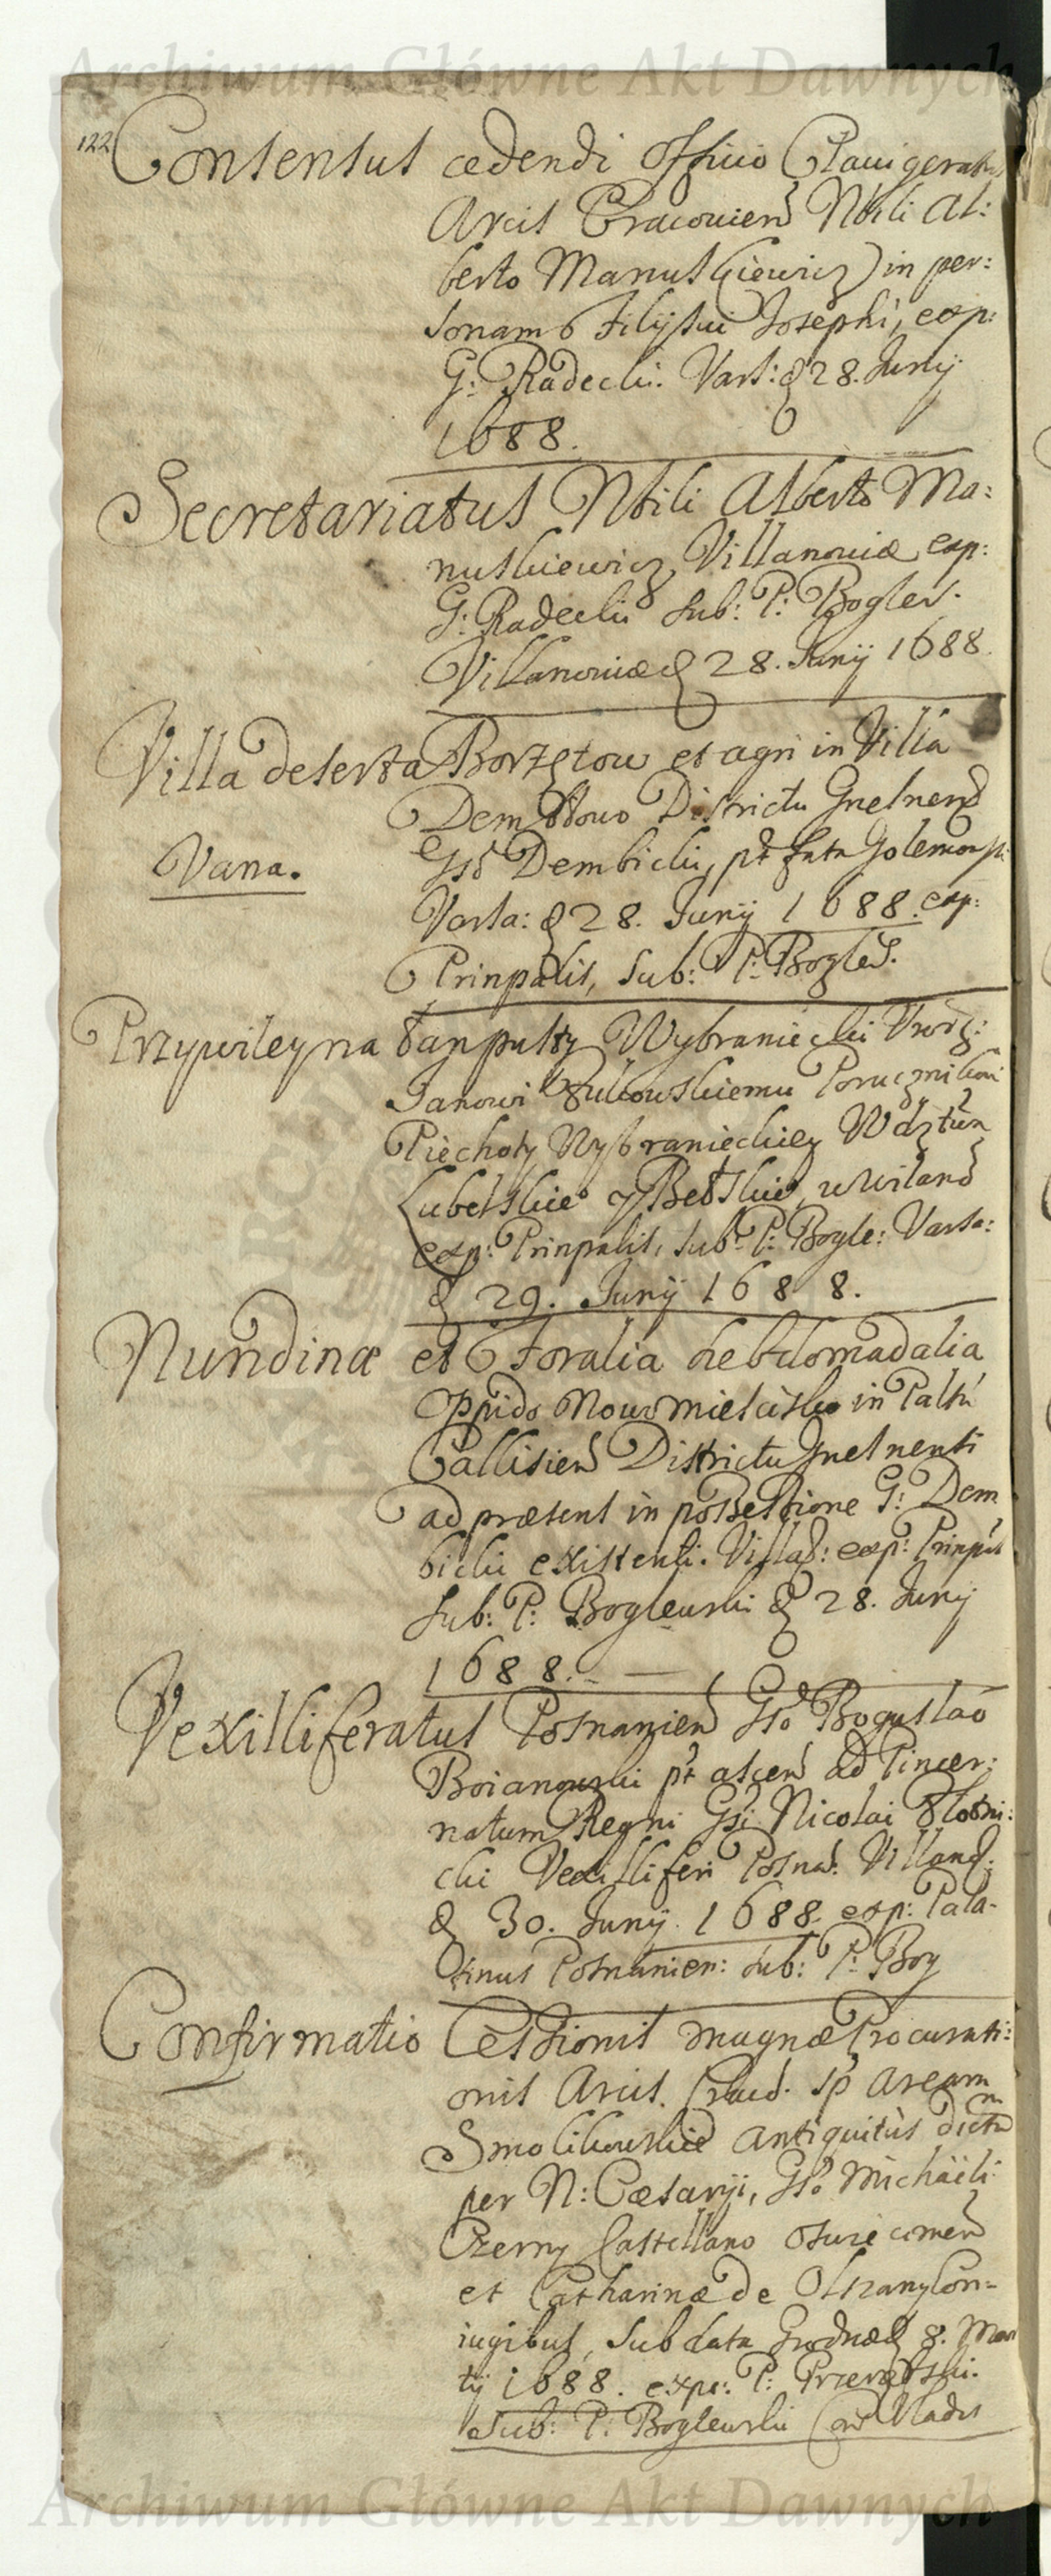 Archiwum Główne Akt Dawnych
122
Consensus cedendi Officio Clavigeratus
Arcis Cracovien Nbili Al:
berto Manuskiewicz in per:
sonam Filij sui Josephi, exp:
G: Radecki. Vars: d 28. Junij
1688.
Secretariatus Nbili Alberto Ma:
nuskiewicz, Villanoviæ exp:
G: Radecki sub: P: Bogles.
Villanoviæ d 28. Junij 1688.
Villa deserta Borzętow et agri in Villa
Dembowo Districtu Gnesnen
Vana.
Gso Dembicki, pt fata Golemowski
Varsa: d 28. Junij 1688. exp:
Prinpalis, sub: P: Bogles.
Przywiley na Łan pusty Wybraniecki Urodz:
Janowi Żukowskiemu Porucznikowi
Piechoty Wybranieckiey Wdztw
Lubelskie y Bełskie, w Wiland
exp: Prinpalis, sub: P: Bogle: Varsa:
d 29. Junij 1688.
Nundinæ et Foralia hebdomadalia
Oppido Nowomieścisko in Paltu
Callisien Districtu Gnesnensi
ad præsens in possessione G: Dem
bicki existenti. Villas: exp: Prinpals
sub: P: Boglewski d 28. Junij
1688. —
Vexilliferatus Posnanien Gso Boguslao
Boianowski pt ascen ad Pincer:
natum Regni Gsi Nicolai Złotni:
cki Vexilliferi Posna: Villand:
d 30. Junij. 1688. exp: Pala-
tinus Posnanien: sub: P: Bog
Confirmatio Cessionis magnæ Procurati:
onis Arcis. Cracd. sp aream
Smolikowskie antiquitùs dictam
per N: Cæsarij, Gso Michaëli
Czerny Castellano Oswiecimen
et Catharinæ de Olszany Con-
iugibus, sub data Grodnæ d 8. Mar
tij 1688. expr: P: Przerębski.
sub: P: Boglewski Can Vladis
Archiwum Główne Akt Dawnych